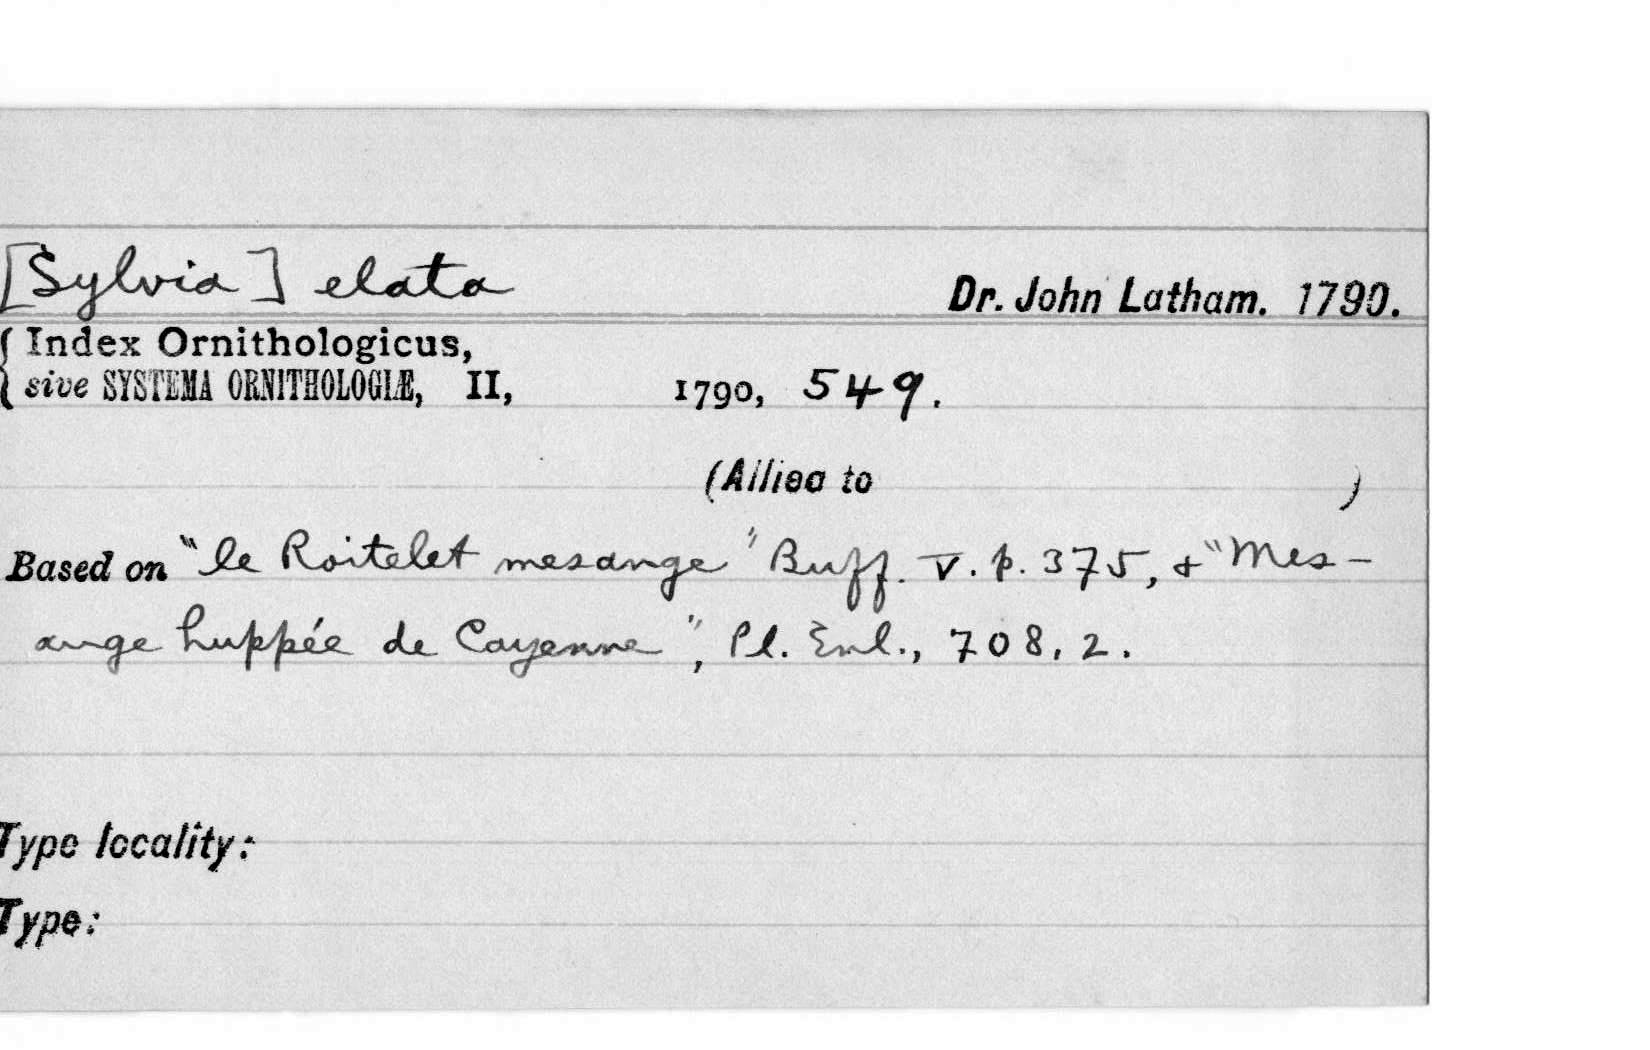 [Sylvia] elata Dr. John Latham. 1790.
Index Ornithologicus,
sive SYSTEMA ORNITHOLOGIÆ, II, 1790, 549.
(Allied to )
Based on "le Roitelet mesange" Buff. V. p. 375, & "Mes-
ange huppée de Cayenne", Pl. Enl., 708, 2.
Type locality:
Type: